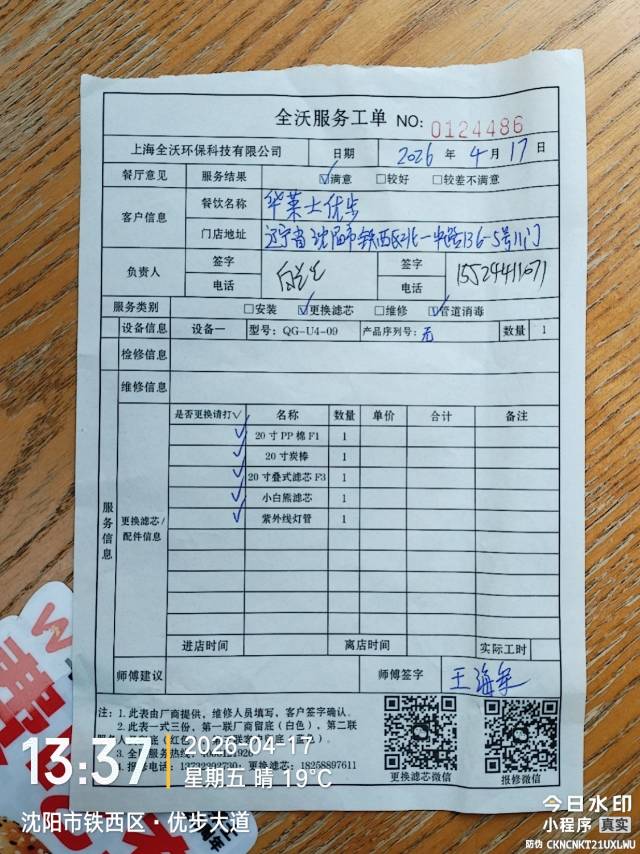 全沃服务工单 NO: 0124486
上海全沃环保科技有限公司 日期 2026 年 4 月 17 日
餐厅意见 服务结果 ☑满意 ☐较好 ☐较差不满意
客户信息 餐饮名称 华莱士优步
门店地址 辽宁省沈阳市铁西区北一中路136-5号11门
负责人 签字 签字
电话 电话 15524411671
服务类别 ☐安装 ☑更换滤芯 ☐维修 ☑管道消毒
设备信息 设备一 型号: QG-U4-09 产品序列号: 无 数量 1
检修信息
维修信息
服务信息
更换滤芯/配件信息
是否更换请打√ 名称 数量 单价 合计 备注
√ 20 寸 PP 棉 F1 1
√ 20 寸炭棒 1
√ 20 寸叠式滤芯 F3 1
√ 小白熊滤芯 1
√ 紫外线灯管 1
进店时间 离店时间 实际工时
师傅建议 师傅签字 王海军
注: 1. 此表由厂商提供, 维修人员填写, 客户签字确认。
2. 此表一式三份, 第一联厂商留底 (白色), 第二联
3. 全
更换滤芯: 18258897611
更换滤芯微信 报修微信
13:37 2026-04-17
星期五 晴 19℃
沈阳市铁西区·优步大道
今日水印
小程序 真实
防伪 CKNCNKT21UXLWU